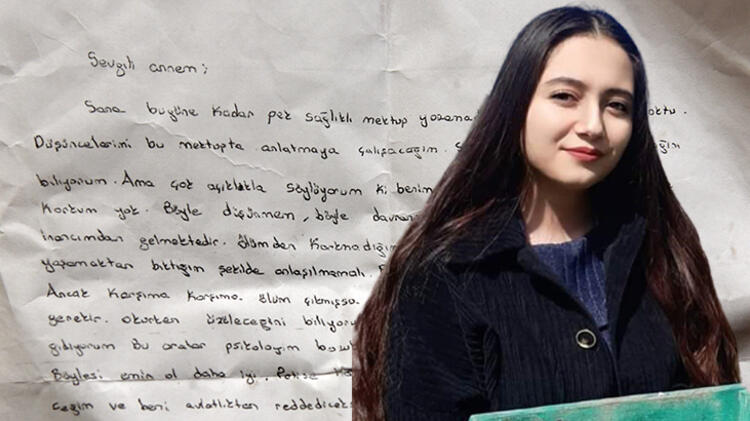 Sevgili annem;
Sana bugüne kadar pek sağlıklı mektup yazama oktu.
Düşüncelerimi bu mektupta anlatmaya çalışacağım. ğın
biliyorum. Ama çok açıklıkla söylüyorum ki benim
korkum yok. Böyle düşünmem, böyle davran
inancımdan gelmektedir. Ölümden korkmadığım
yaşamaktan bıktığım şekilde anlaşılmamalı.
Ancak karşıma karşıma ölüm çıkmışsa
gerekir. okurken üzeleceğini biliyoru
gidiyorum bu aralar psikolojim bozuk
Böylesi emin ol daha iyi.
ceğim ve beni evlatlıktan reddedicek